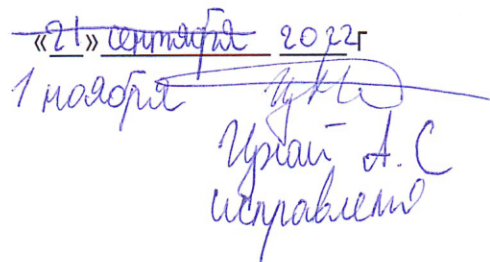 «21» сентября 2022г
1 ноября
А. С
исправлено